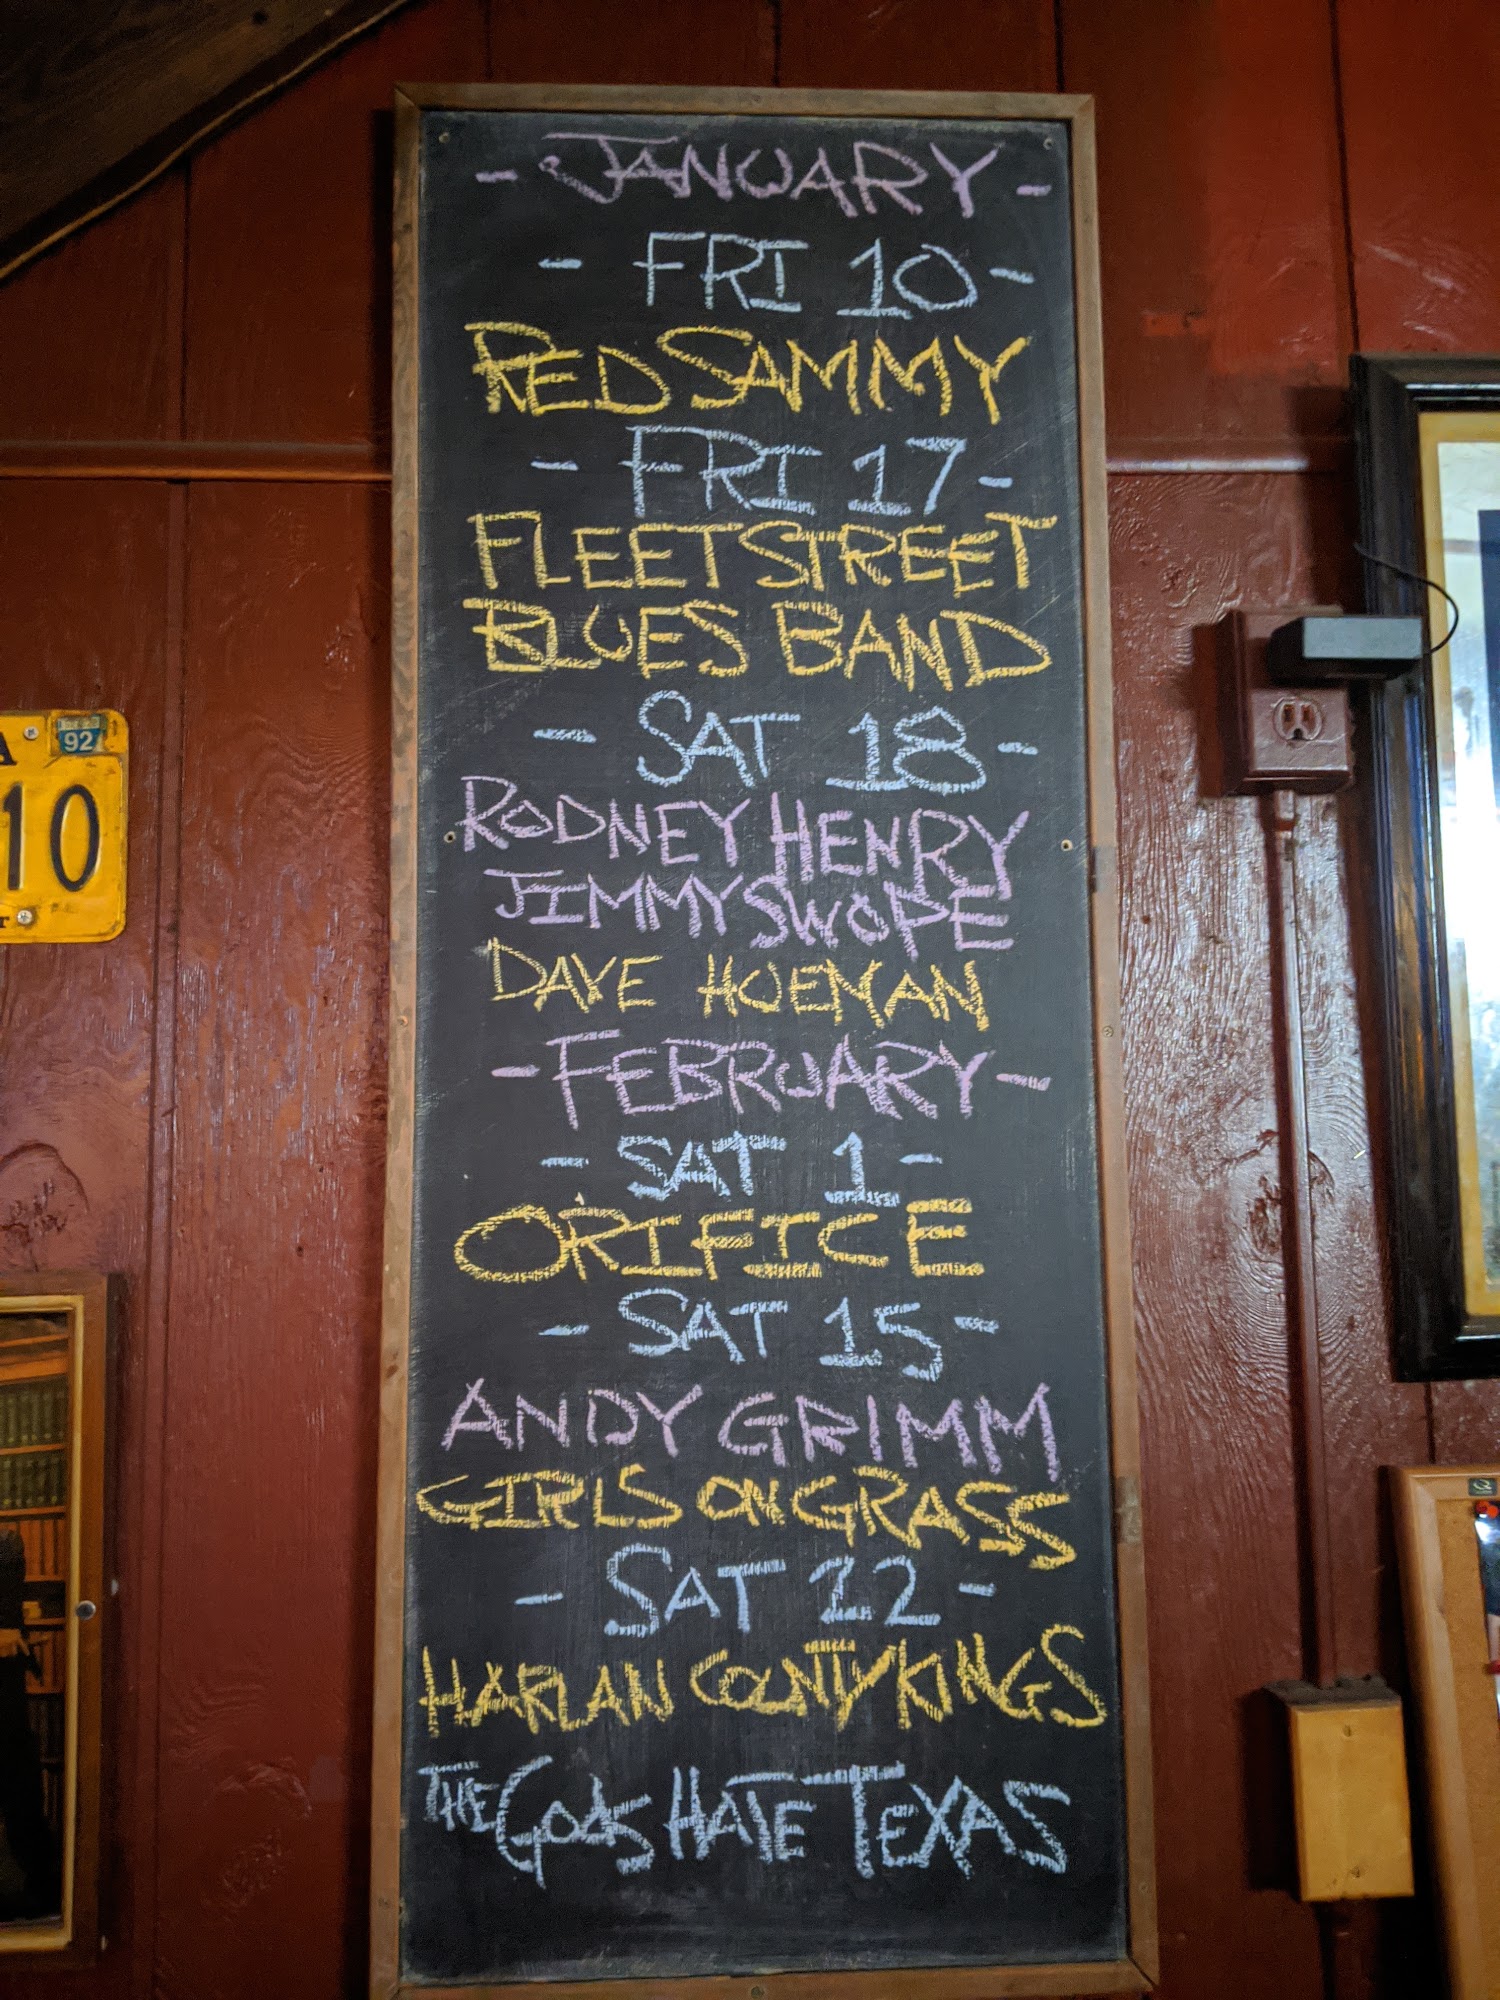 - JANUARY -
- FRI 10 -
RED SAMMY
- FRI 17 -
FLEET STREET
BLUES BAND
- SAT 18 -
RODNEY HENRY
JIMMY SWOPE
DAVE HOEMAN
- FEBRUARY -
- SAT 1 -
ORIFICE
- SAT 15 -
ANDY GRIMM
GIRLS ON GRASS
- SAT 22 -
HARLAN COUNTY KINGS
THE GODS HATE TEXAS
92
10